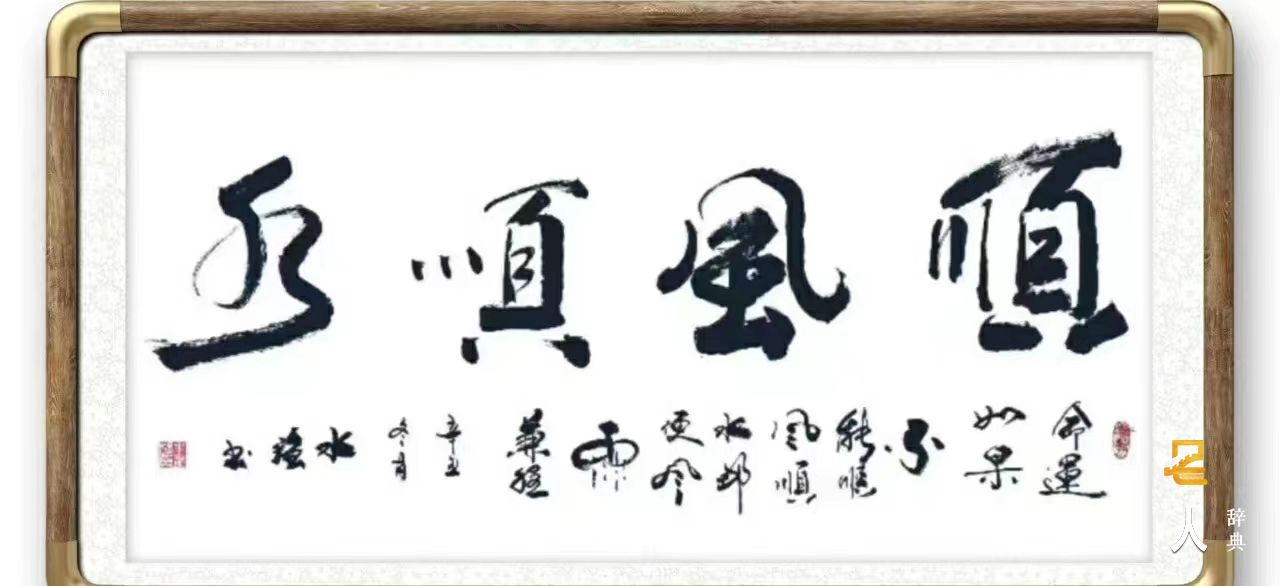 順風順水
命運
如果
不
能順
风順
水那
便风
雨
兼程
辛丑
冬月
水
书
名人辞典